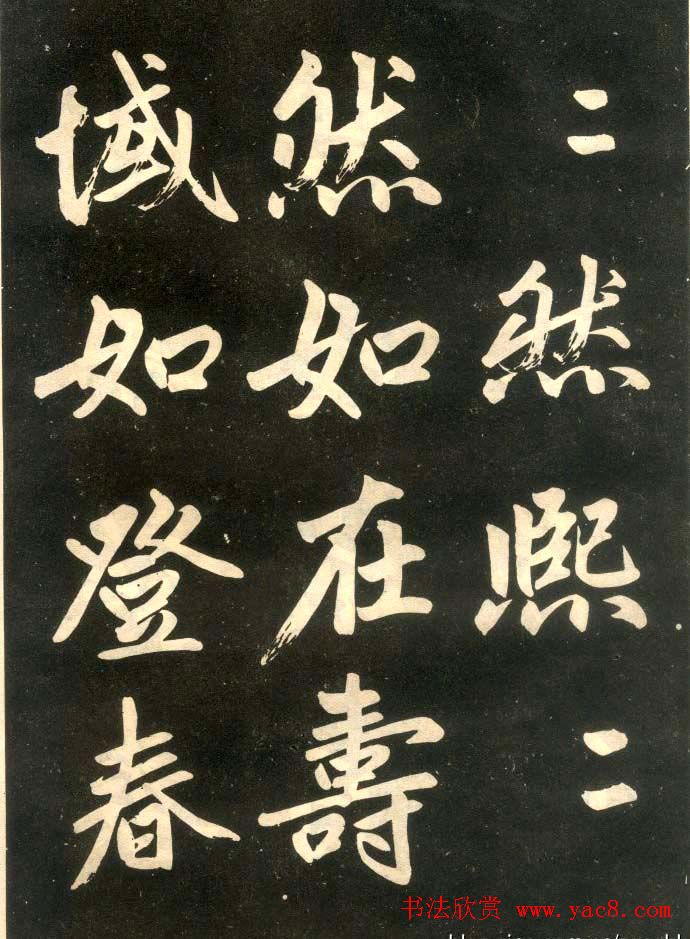 〻然熙〻
然如在壽
域如登春
书法欣赏 www.yac8.com